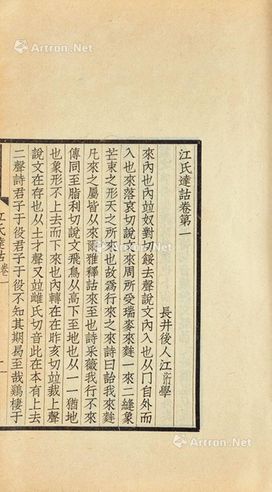 Artron.Net
江氏達詁卷第一
長井後人江𣂏學
來內也內並奴對切綏去聲說文內入也从冂自外而
入也來落哀切說文來周所受瑞麥來麰一來二縫象
芒朿之形天之所來也故爲行來之來詩曰詒我來麰
凡來之屬皆从來爾雅釋詁來至也詩采薇我行不來
傳同至脂利切說文飛鳥从高下至地也从一一猶地
也象形不上去而下來也內轉在在昨亥切並裁上聲
說文在存也从土才聲又並雌氏切音此在本有上去
二聲詩君子于役君子于役不知其期曷至哉鷄棲于
江氏達詁卷一
一
Artron.Net